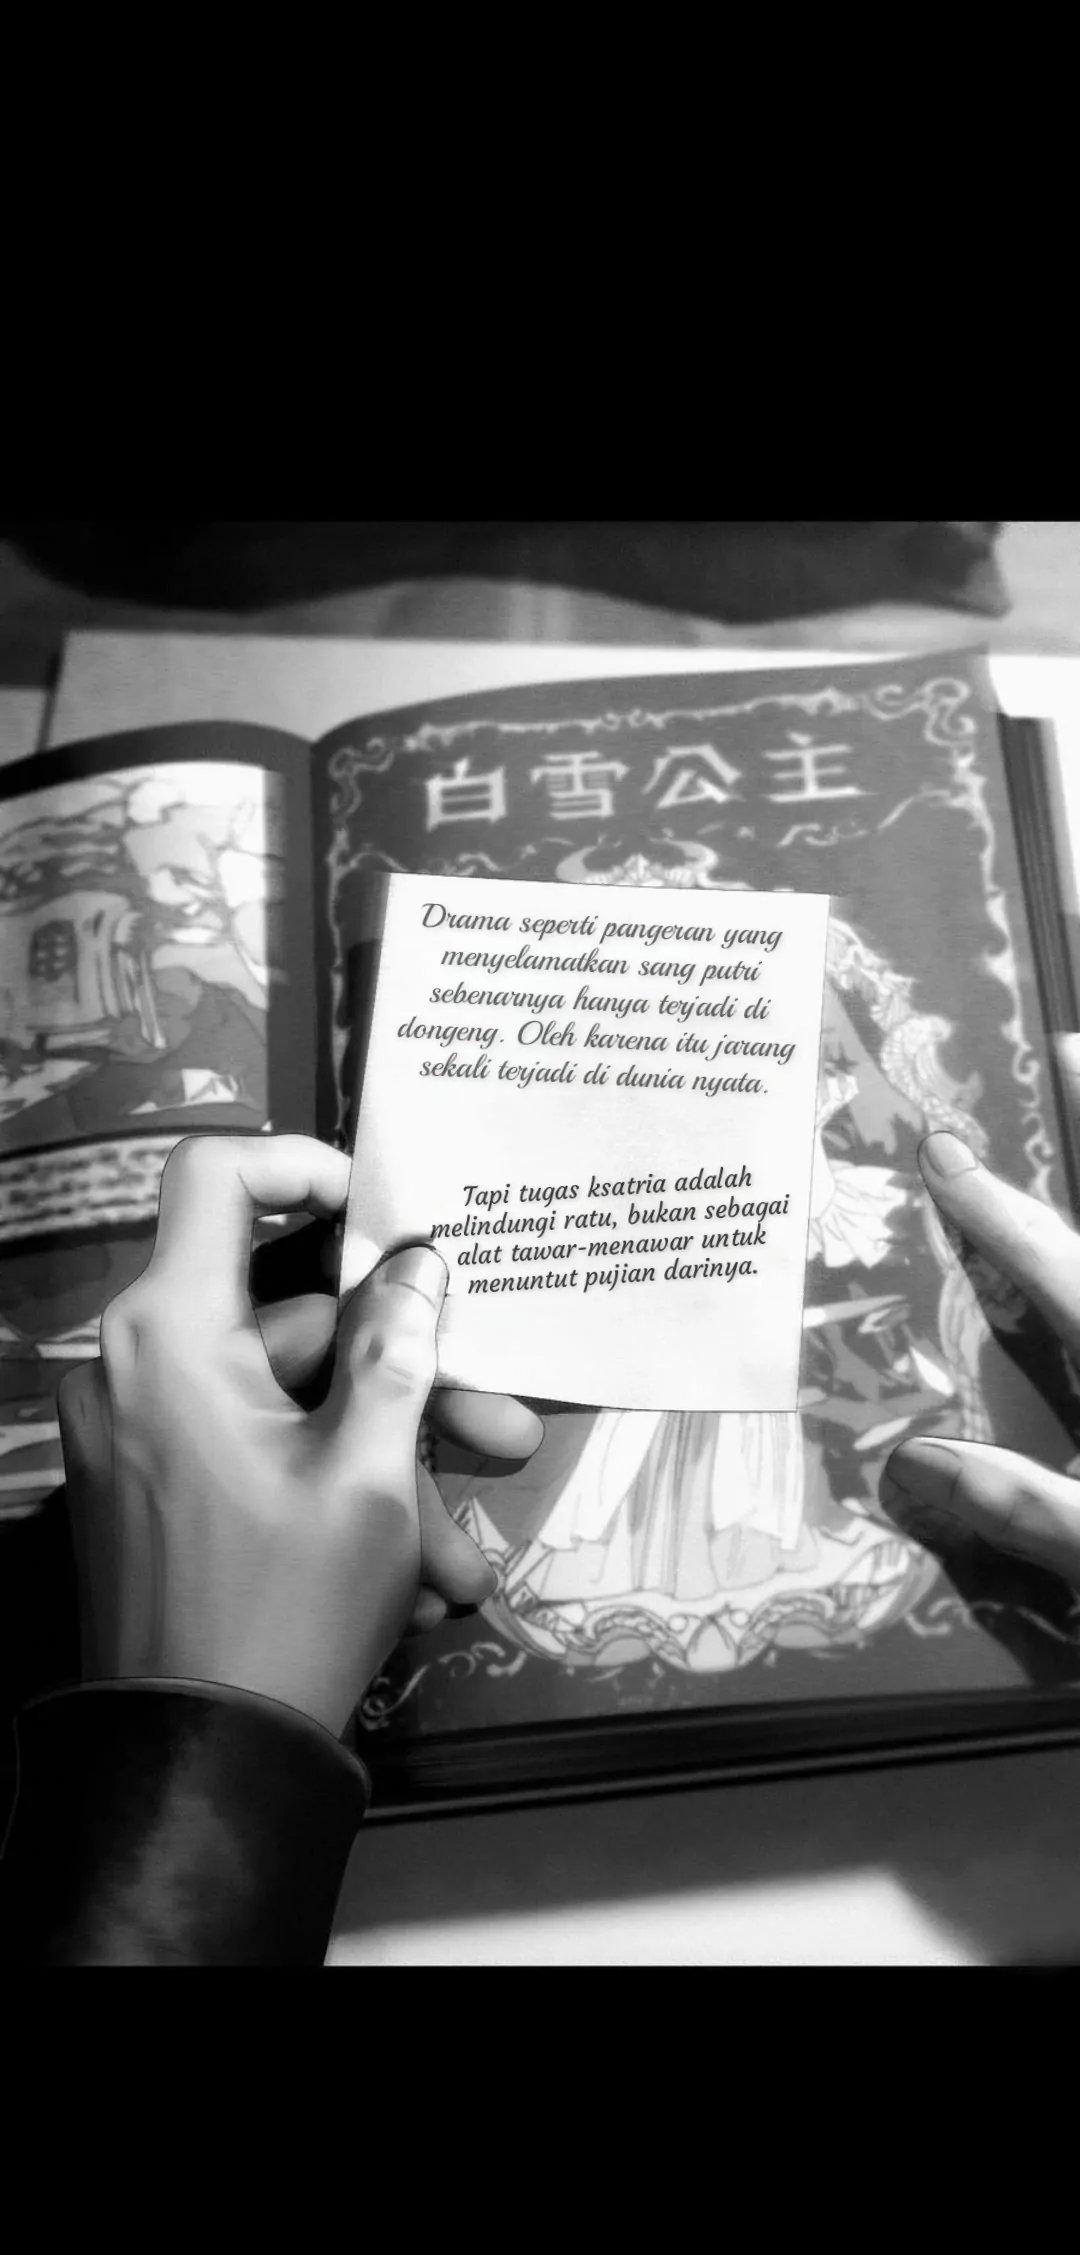 白雪公主
Drama seperti pangeran yang
menyelamatkan sang putri
sebenarnya hanya terjadi di
dongeng. Oleh karena itu jarang
sekali terjadi di dunia nyata.
Tapi tugas ksatria adalah
melindungi ratu, bukan sebagai
alat tawar-menawar untuk
menuntut pujian darinya.